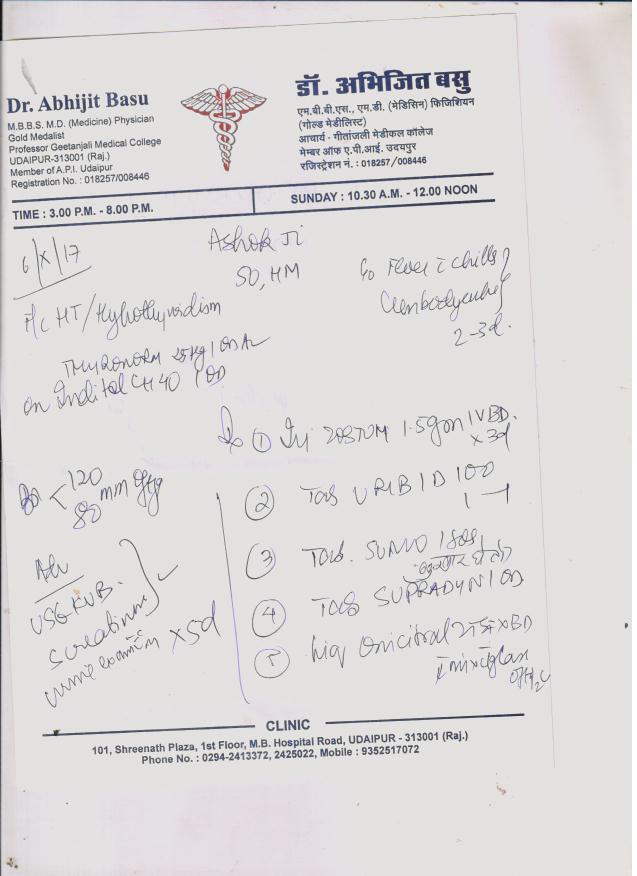 Dr. Abhijit Basu
M.B.B.S. M.D. (Medicine) Physician
Gold Medalist
Professor Geetanjali Medical College
UDAIPUR-313001 (Raj.)
Member of A.P.I. Udaipur
Registration No. : 018257/008446
डॉ. अभिजित बसु
एम.बी.बी.एस., एम.डी. (मेडिसिन) फिजिशियन
(गोल्ड मेडीलिस्ट)
आचार्य - गीतांजली मेडीकल कॉलेज
मेम्बर ऑफ ए.पी.आई. उदयपुर
रजिस्ट्रेशन नं. : 018257/008446
TIME : 3.00 P.M. - 8.00 P.M.
SUNDAY : 10.30 A.M. - 12.00 NOON
6/X/17
Ashok Ji
50, HM
Fever c chills
2-3d.
HT/Hypothyroidism
THYRONORM 25µg 1 OD
on Inditel CH 40 1 OD
① Inj 1.5gm IV BD.
x 3d
120
80 mm Hg
② Tab URIBID 100
1 - 1
③ Tab. SUMO 1 SOS
④ Tab SUPRADYN 1 OD
⑤ Liq Oricitral x BD
Adv
USG KUB.
S creatinine
urine exam x 5d
CLINIC
101, Shreenath Plaza, 1st Floor, M.B. Hospital Road, UDAIPUR - 313001 (Raj.)
Phone No. : 0294-2413372, 2425022, Mobile : 9352517072